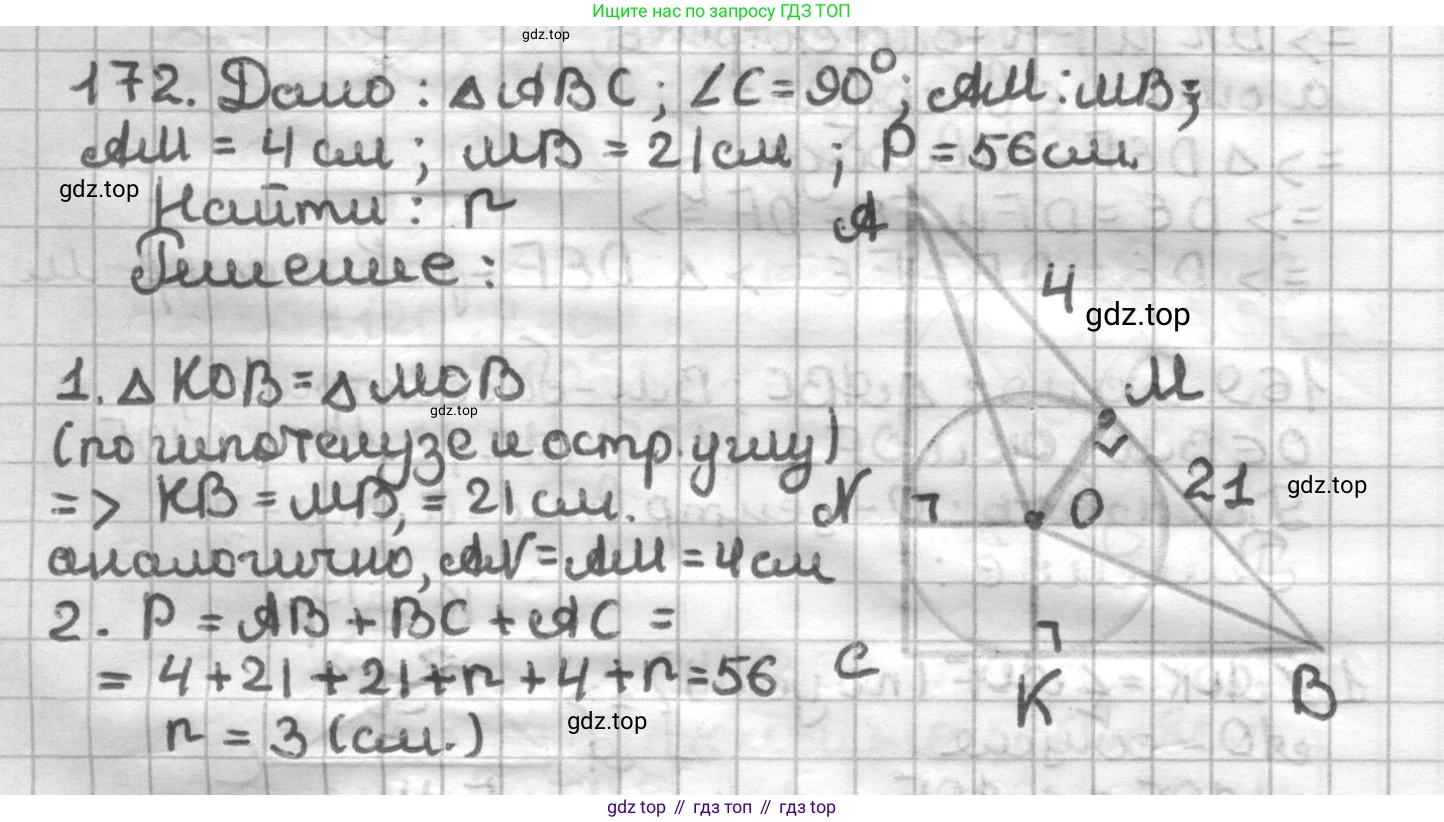 Ищите нас по запросу ГДЗ ТОП
gdz.top
172. Дано: △ABC; ∠C=90°; AM:MB;
AM = 4 см; MB = 21 см; P = 56 см.
gdz.top
Найти: r
Решение:
A
4
gdz.top
M
1. △KOB=△MOB
gdz.top
(по гипотенузе и остр. углу)
=> KB = MB, = 21 см.
N
O
21
gdz.top
аналогично, AN = AM = 4 см
2. P = AB + BC + AC =
= 4+21+21+r+4+r=56
C
K
B
r = 3 (см.)
gdz.top
gdz top // гдз топ // гдз top